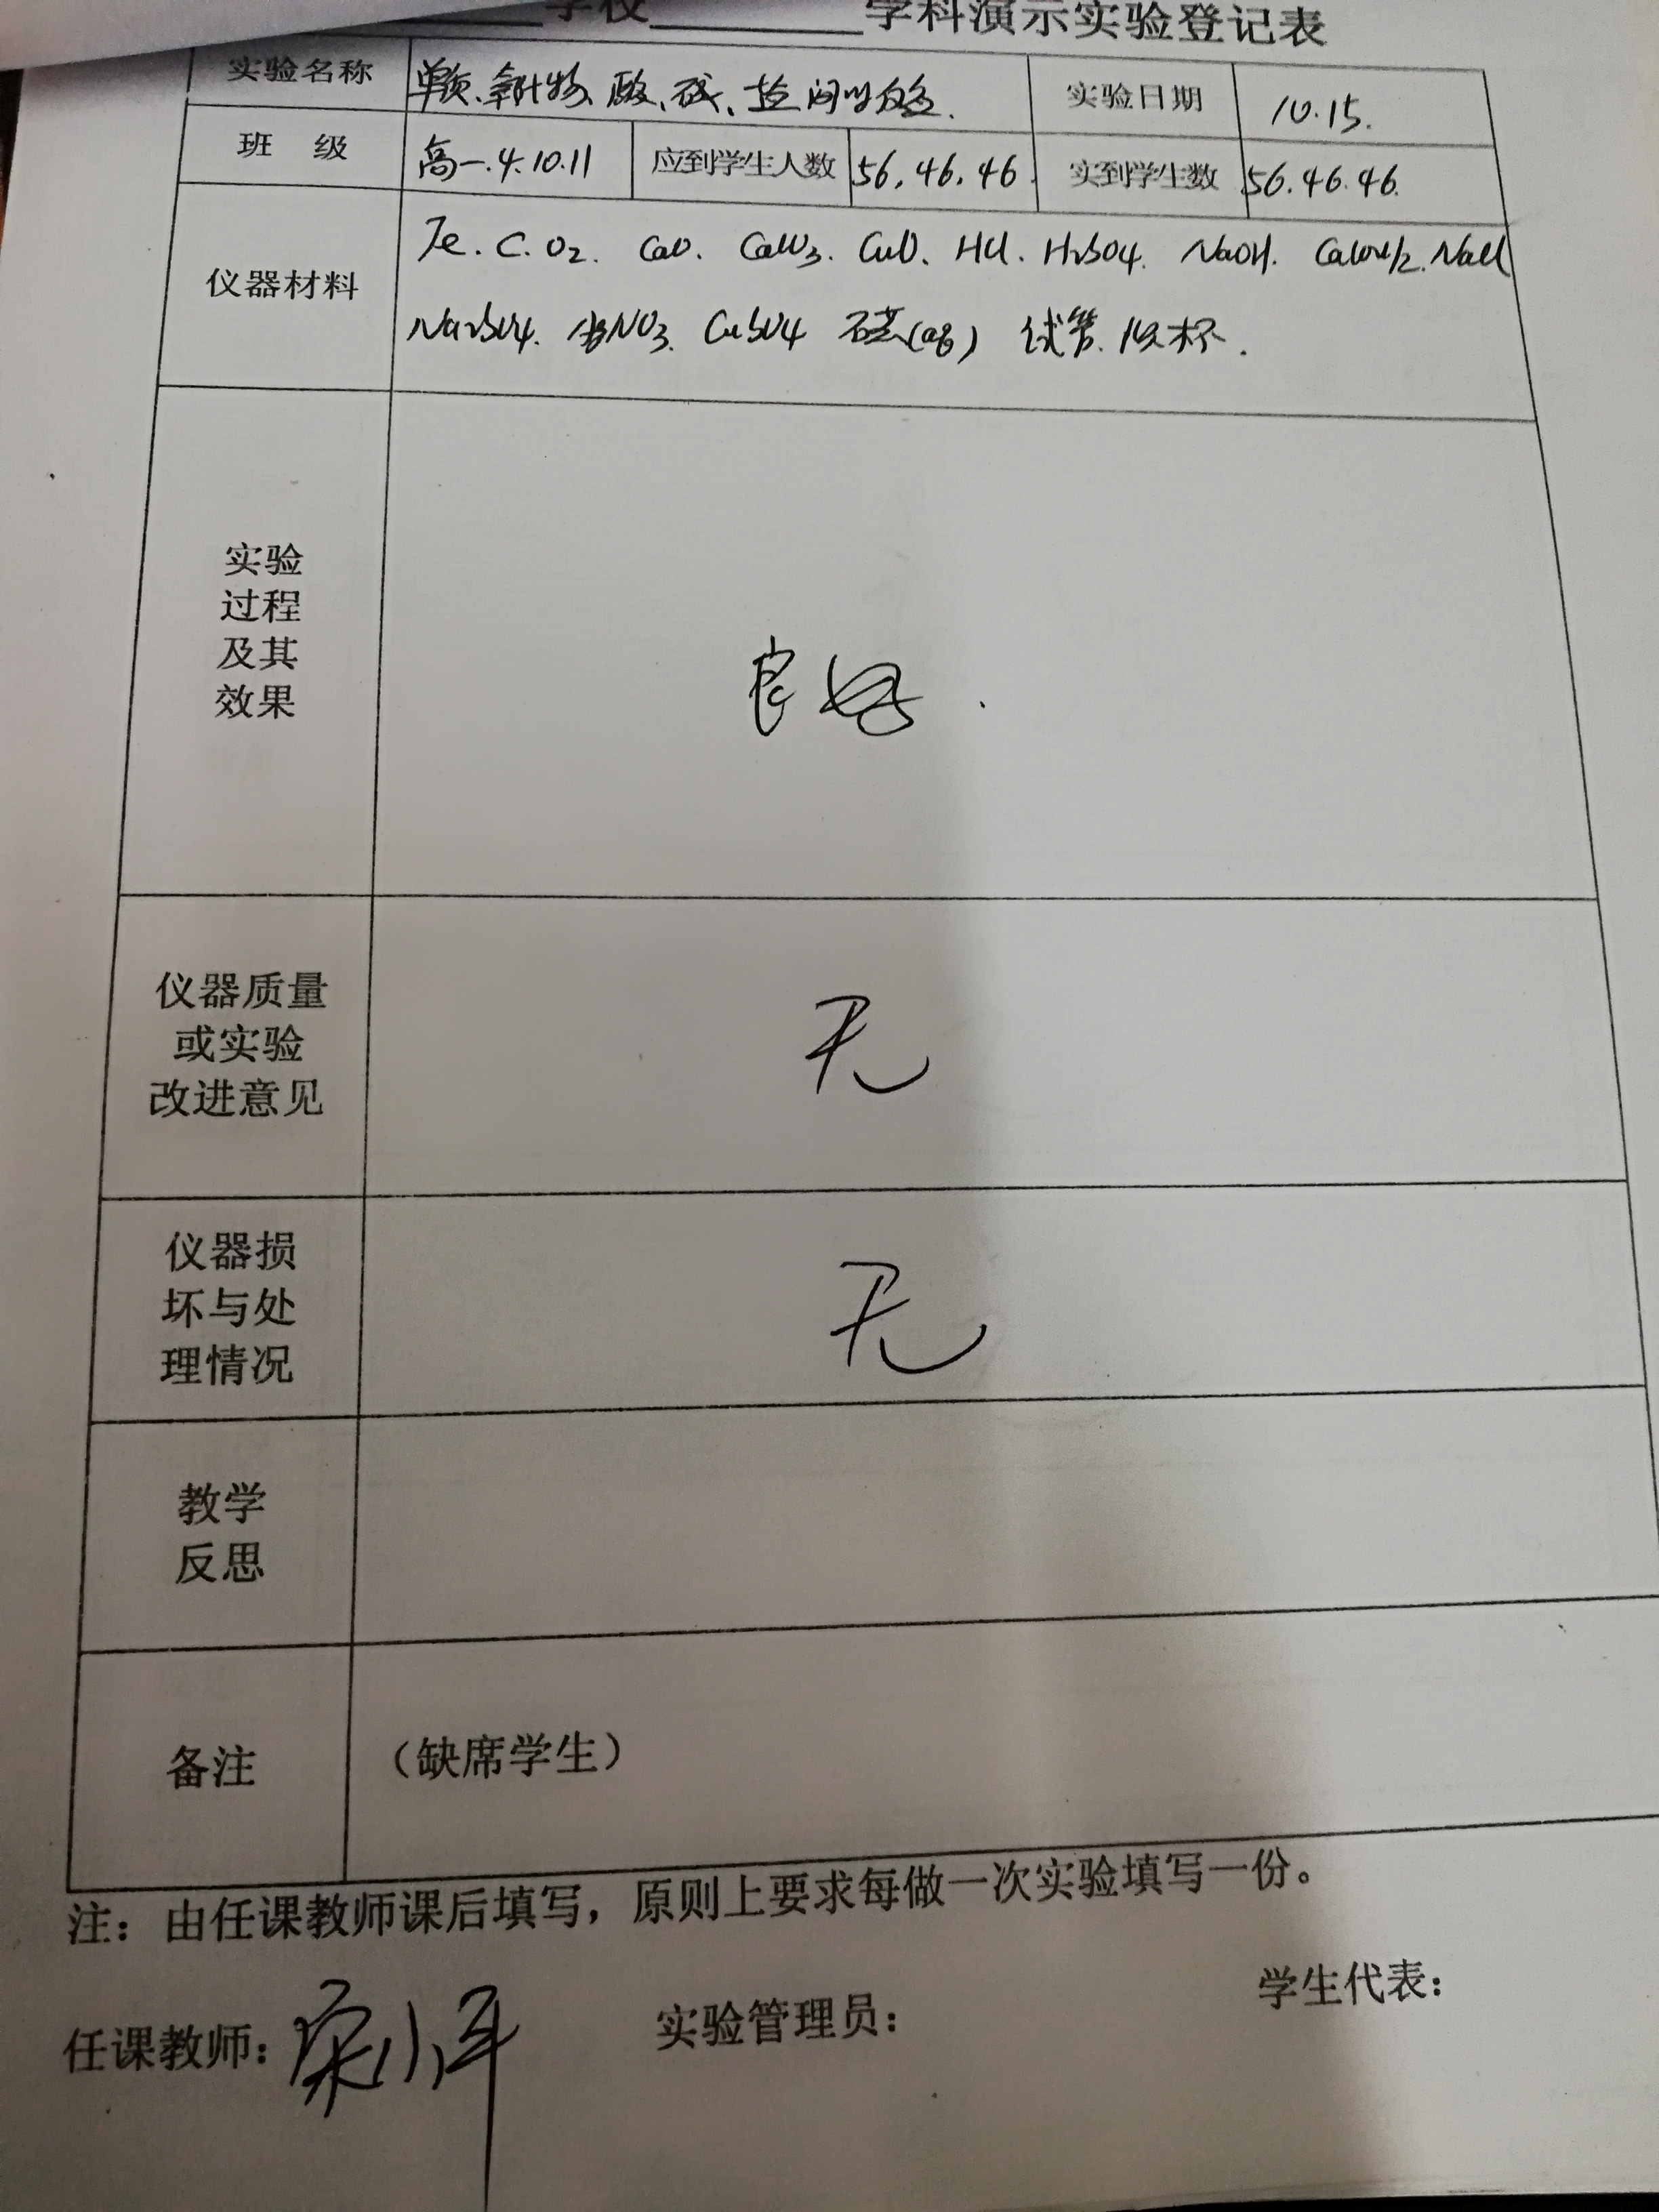 学校 学科演示实验登记表
实验名称 单质、氧化物、酸、碱、盐间的反应. 实验日期 10.15.
班 级 高一.4.10.11 应到学生人数 56.46.46. 实到学生数 56.46.46.
仪器材料 Fe. C. O2. CaO. CaCO3. CuO. HCl. H2SO4. NaOH. Ca(OH)2. NaCl
Na2SO4. AgNO3. CuSO4 石蕊(aq) 试管. 烧杯.
实验
过程
及其
效果
良好.
仪器质量
或实验
改进意见
无
仪器损
坏与处
理情况
无
教学
反思
备注 （缺席学生）
注：由任课教师课后填写，原则上要求每做一次实验填写一份。
任课教师： 实验管理员： 学生代表：